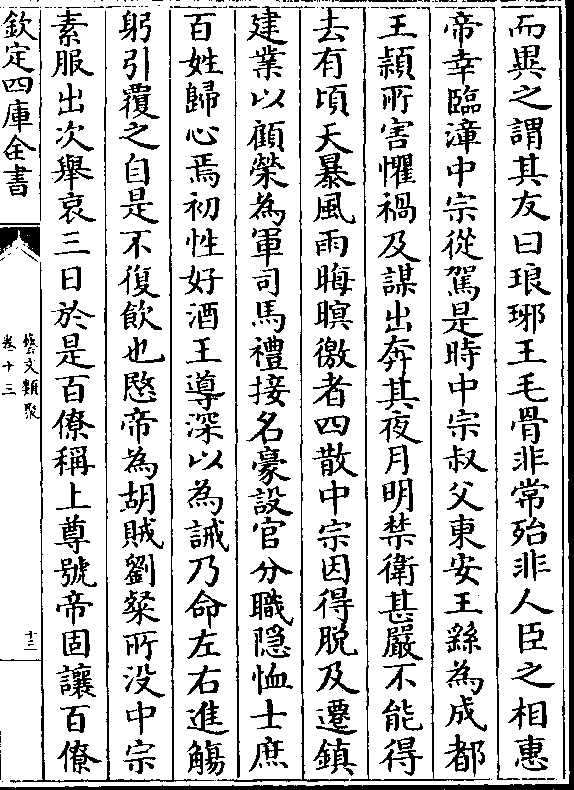 而異之謂其友曰琅琊王毛骨非常殆非人臣之相惠
帝幸臨漳中宗從駕是時中宗叔父東安王繇為成都
王穎所害懼禍及謀出奔其夜月明禁衛甚嚴不能得
去有頃天暴風雨晦暝徼者四散中宗因得脱及遷鎮
建業以顧榮為軍司馬禮接名豪設官分職隱恤士庶
百姓歸心焉初性好酒王導深以為誡乃命左右進觴
躬引覆之自是不復飲也愍帝為胡賊劉粲所没中宗
素服出次舉哀三日於是百僚稱上尊號帝固讓百僚
欽定四庫全書
藝文類聚
卷十三
十三